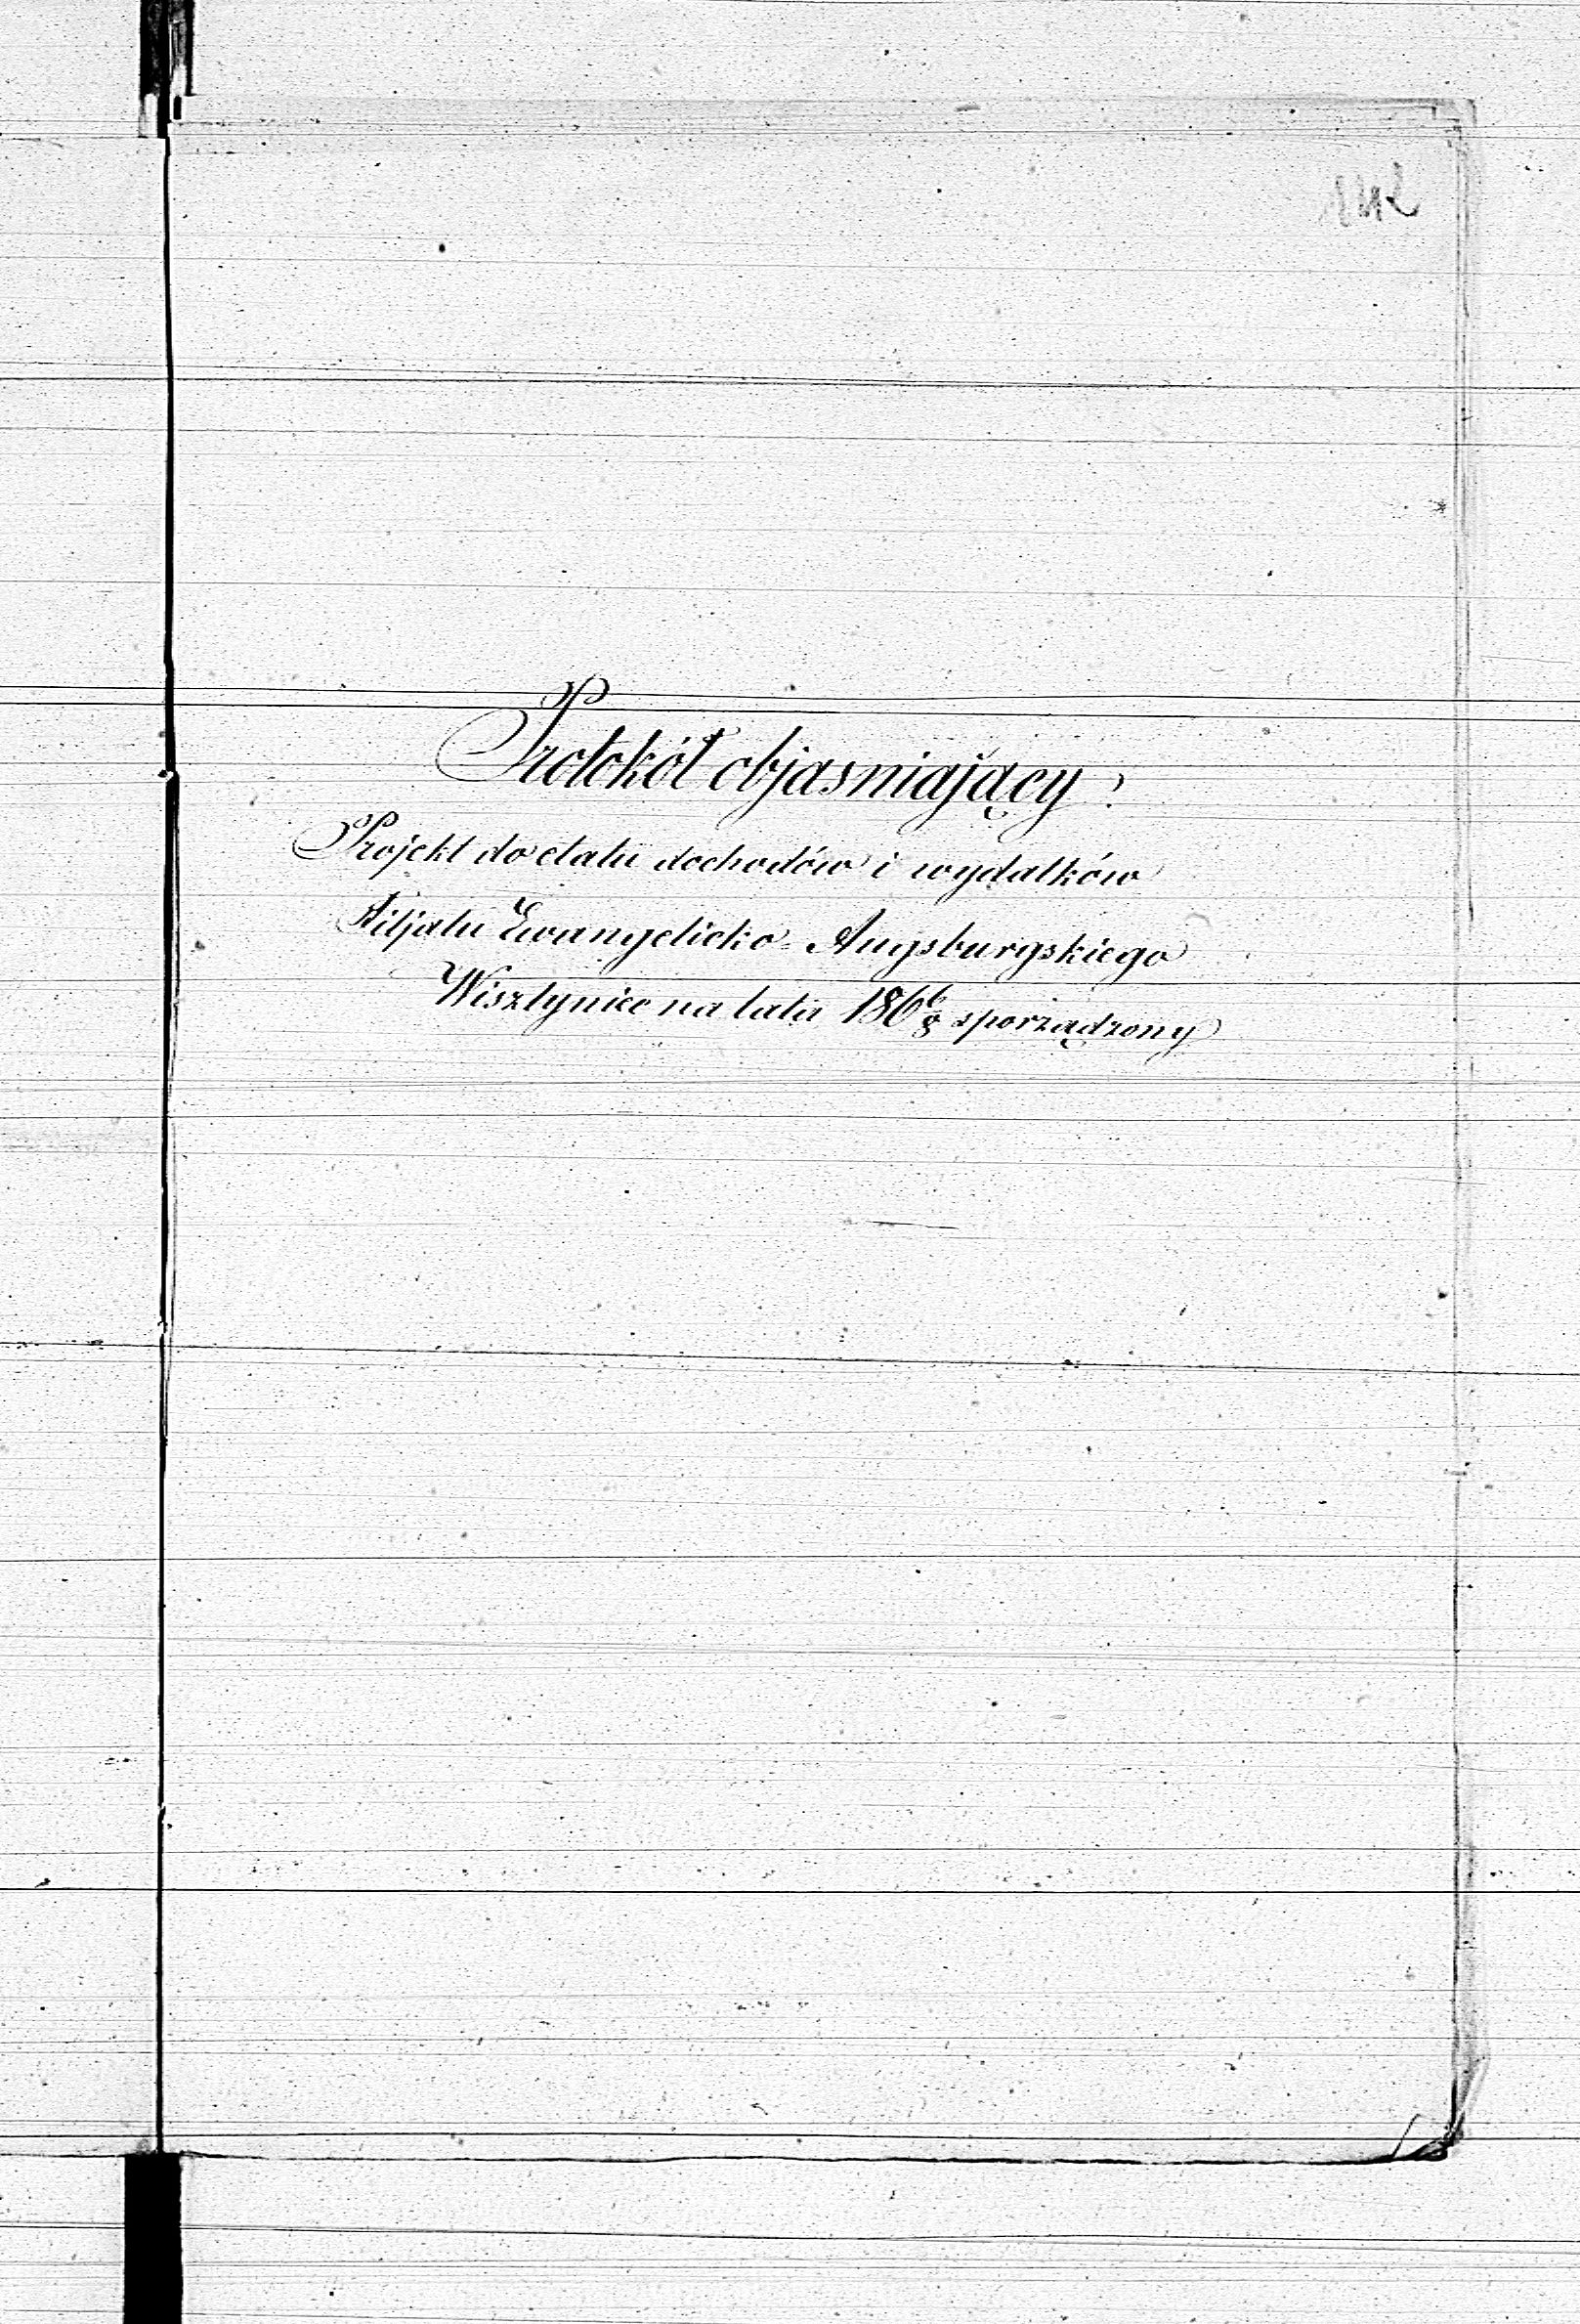 Protokół objasniający
Projekt do etatu dochodów i wydatków
Filjału Ewangelicko-Augsburgskiego
Wisztyniec na lata 186 6/8 sporządzony